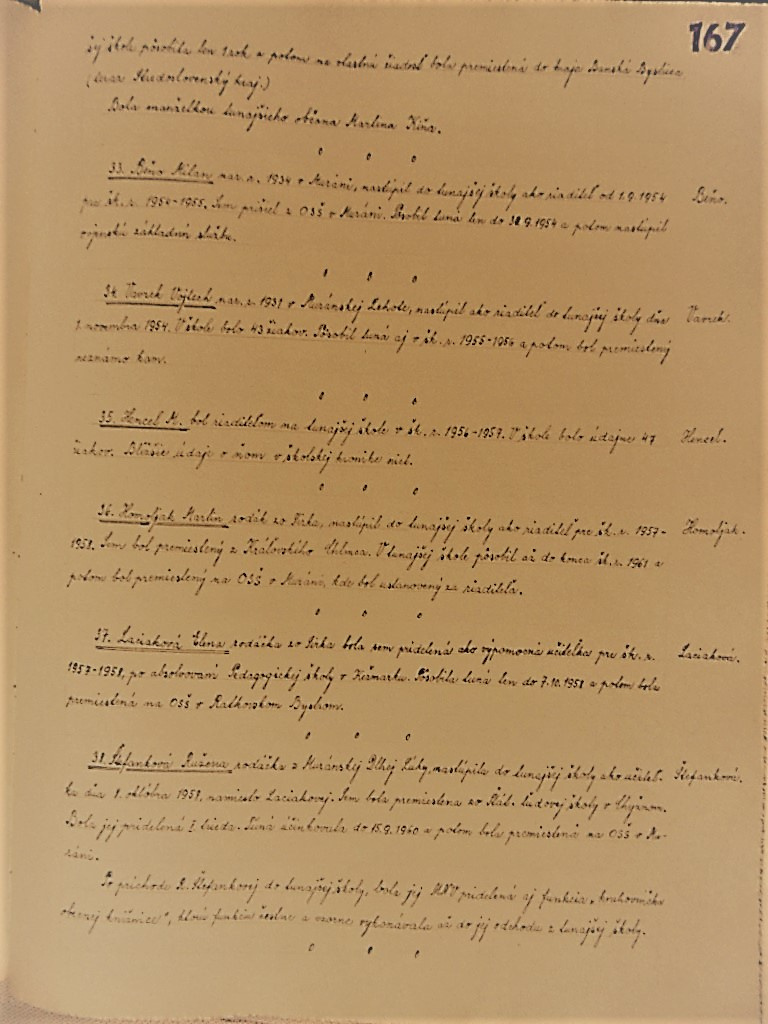 167
tej škole pôsobila len 1 rok a potom na vlastnú žiadosť bola premiestená do kraja Banská Bystrica
(teraz Stredoslovenský kraj.)
Bola manželkou tunajšieho občana Martina Kiňa.
33. Bíňo Milan nar. r. 1934 v Muráni, nastúpil do tunajšej školy ako riaditeľ od 1.9.1954
pre šk. r. 1954-1955. Sem prišiel z OSŠ v Muráni. Pôsobil tuná len do 30.9.1954 a potom nastúpil
vojenskú základnú službu.
Bíňo.
34. Vavrek Vojtech nar. r. 1931 v Muránskej Lehote, nastúpil ako riaditeľ do tunajšej školy dňa
1. novembra 1954. V škole bolo 43 žiakov. Pôsobil tuná aj v šk. r. 1955-1956 a potom bol premiestený
neznámo kam.
Vavrek.
35. Hencel M. bol riaditeľom na tunajšej škole v šk. r. 1956-1957. V škole bolo údajne 47
žiakov. Bližšie údaje o ňom v školskej kronike niet.
Hencel.
36. Homoljak Martin rodák zo Sirka, nastúpil do tunajšej školy ako riaditeľ pre šk. r. 1957-
1958. Sem bol premiestený z Kráľovského Chlmca. V tunajšej škole pôsobil až do konca šk. r. 1961 a
potom bol premiestený na OSŠ v Muráni, kde bol ustanovený za riaditeľa.
Homoljak.
37. Laciaková Elena rodáčka zo Sirka bola sem pridelená ako výpomocná učiteľka pre šk. r.
1957-1958, po absolvovaní Pedagogickej školy v Kežmarku. Pôsobila tuná len do 7.10.1958 a potom bola
premiestená na OSŠ v Ratkovskom Bystrom.
Laciaková.
38. Štefanková Ružena rodáčka z Muránskej Dlhej Lúky, nastúpila do tunajšej školy ako učiteľ-
ka dňa 8. októbra 1958, namiesto Laciakovej. Sem bola premiestená zo Štát. ľudovej školy v Chyžnom.
Bola jej pridelená I. trieda. Tuná účinkovala do 15.9.1960 a potom bola premiestená na OSŠ v Mu-
ráni.
Štefanková.
Po príchode R. Štefankovej do tunajšej školy, bola jej MNV pridelená aj funkcia „knihovníčke
obecnej knižnice", ktorú funkciu čestne a vzorne vykonávala až do jej odchodu z tunajšej školy.